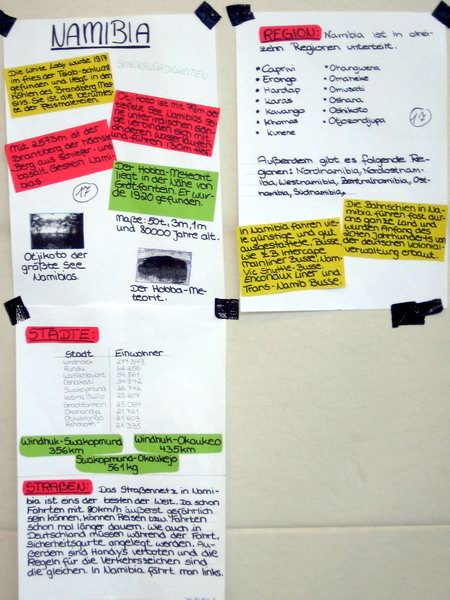 NAMIBIA
SEHENSWÜRDIGKEITEN
Die White Lady wurde 1917
im fries der Tsisab-Schlucht
gefunden und liegt in den
des Brandberg Mas-
sivs. Sie ist die berühmtes-
te der Felsmalereien.
Otjikoto ist mit
größte See Namibias. Er
mit unterirdischen Gän-
gen verbinden ihn mit
anderen Wasserläufen
und führen 130m tief.
Mit 2573m ist der
Brantberg der höchste
Berg aus Schiefer- und
basalt. Gestein Nami-
bias.
Der Hobba-Meteorit
liegt in der Nähe von
Grotfontein. Er wur-
de 1920 gefunden.
17
Maße: 50t, 3m, 1m
und 80000 Jahre alt.
Otjikoto der
größte See
Namibias.
Der Hobba-Me-
teorit.
REGION: Namibia ist in drei-
zehn Regionen unterteilt.
•Caprivi
•Erongo
•Hardap
•Karas
•Kavango
•Khomas
•Kunene
•Ohangwena
•Omaheke
•Omusati
•Oshana
•Oshikoto
•Otjozondjupa
17
Außerdem gibt es folgende Re-
gionen: Nordnamibia, Nordostnam-
ibia, Westnamibia, Zentralnamibia, Ost-
namibia, Südnamibia,
In Namibia fahren vie-
le günstige und gut
ausgestattete Busse.
Wie z.B Intercape
mainliner Busse, Nam-
Vic Shuttle-Busse,
Enconolux Liner und
Trans-Namib Busse.
Die Bahnschien in Na-
mibia führen fast dur-
chs ganze Land und
wurden Anfang des
20ten Jahrhunderts von
der deutschen Kolonial-
verwaltung erbaut.
STÄDTE:
Stadt Einwohner
Windhoek
Rundu
Walfischbucht
Oshakati
Swakopmund
Katima Mulilo
Grootfontein
Okahandja
Otjiwarongo
Rehoboth
Windhuk-Swakopmund
356km
Windhuk-Okaukeo
435km
Swakopmund-Okaukejo
561kg
STRAßEN: Das Straßennetz in Nami-
bia ist eins der besten der Welt. Da schon
Fahrten mit 80km/h äußerst gefährlich
sein können, können Reisen bzw. Fahrten
schon mal länger dauern. Wie auch in
Deutschland müssen während der Fahrt,
Sicherheitsgurte angelegt werden. Au-
ßerdem sind Handys verboten und die
Regeln für die Verkehrszeichen sind
die gleichen. In Namibia fährt man links.